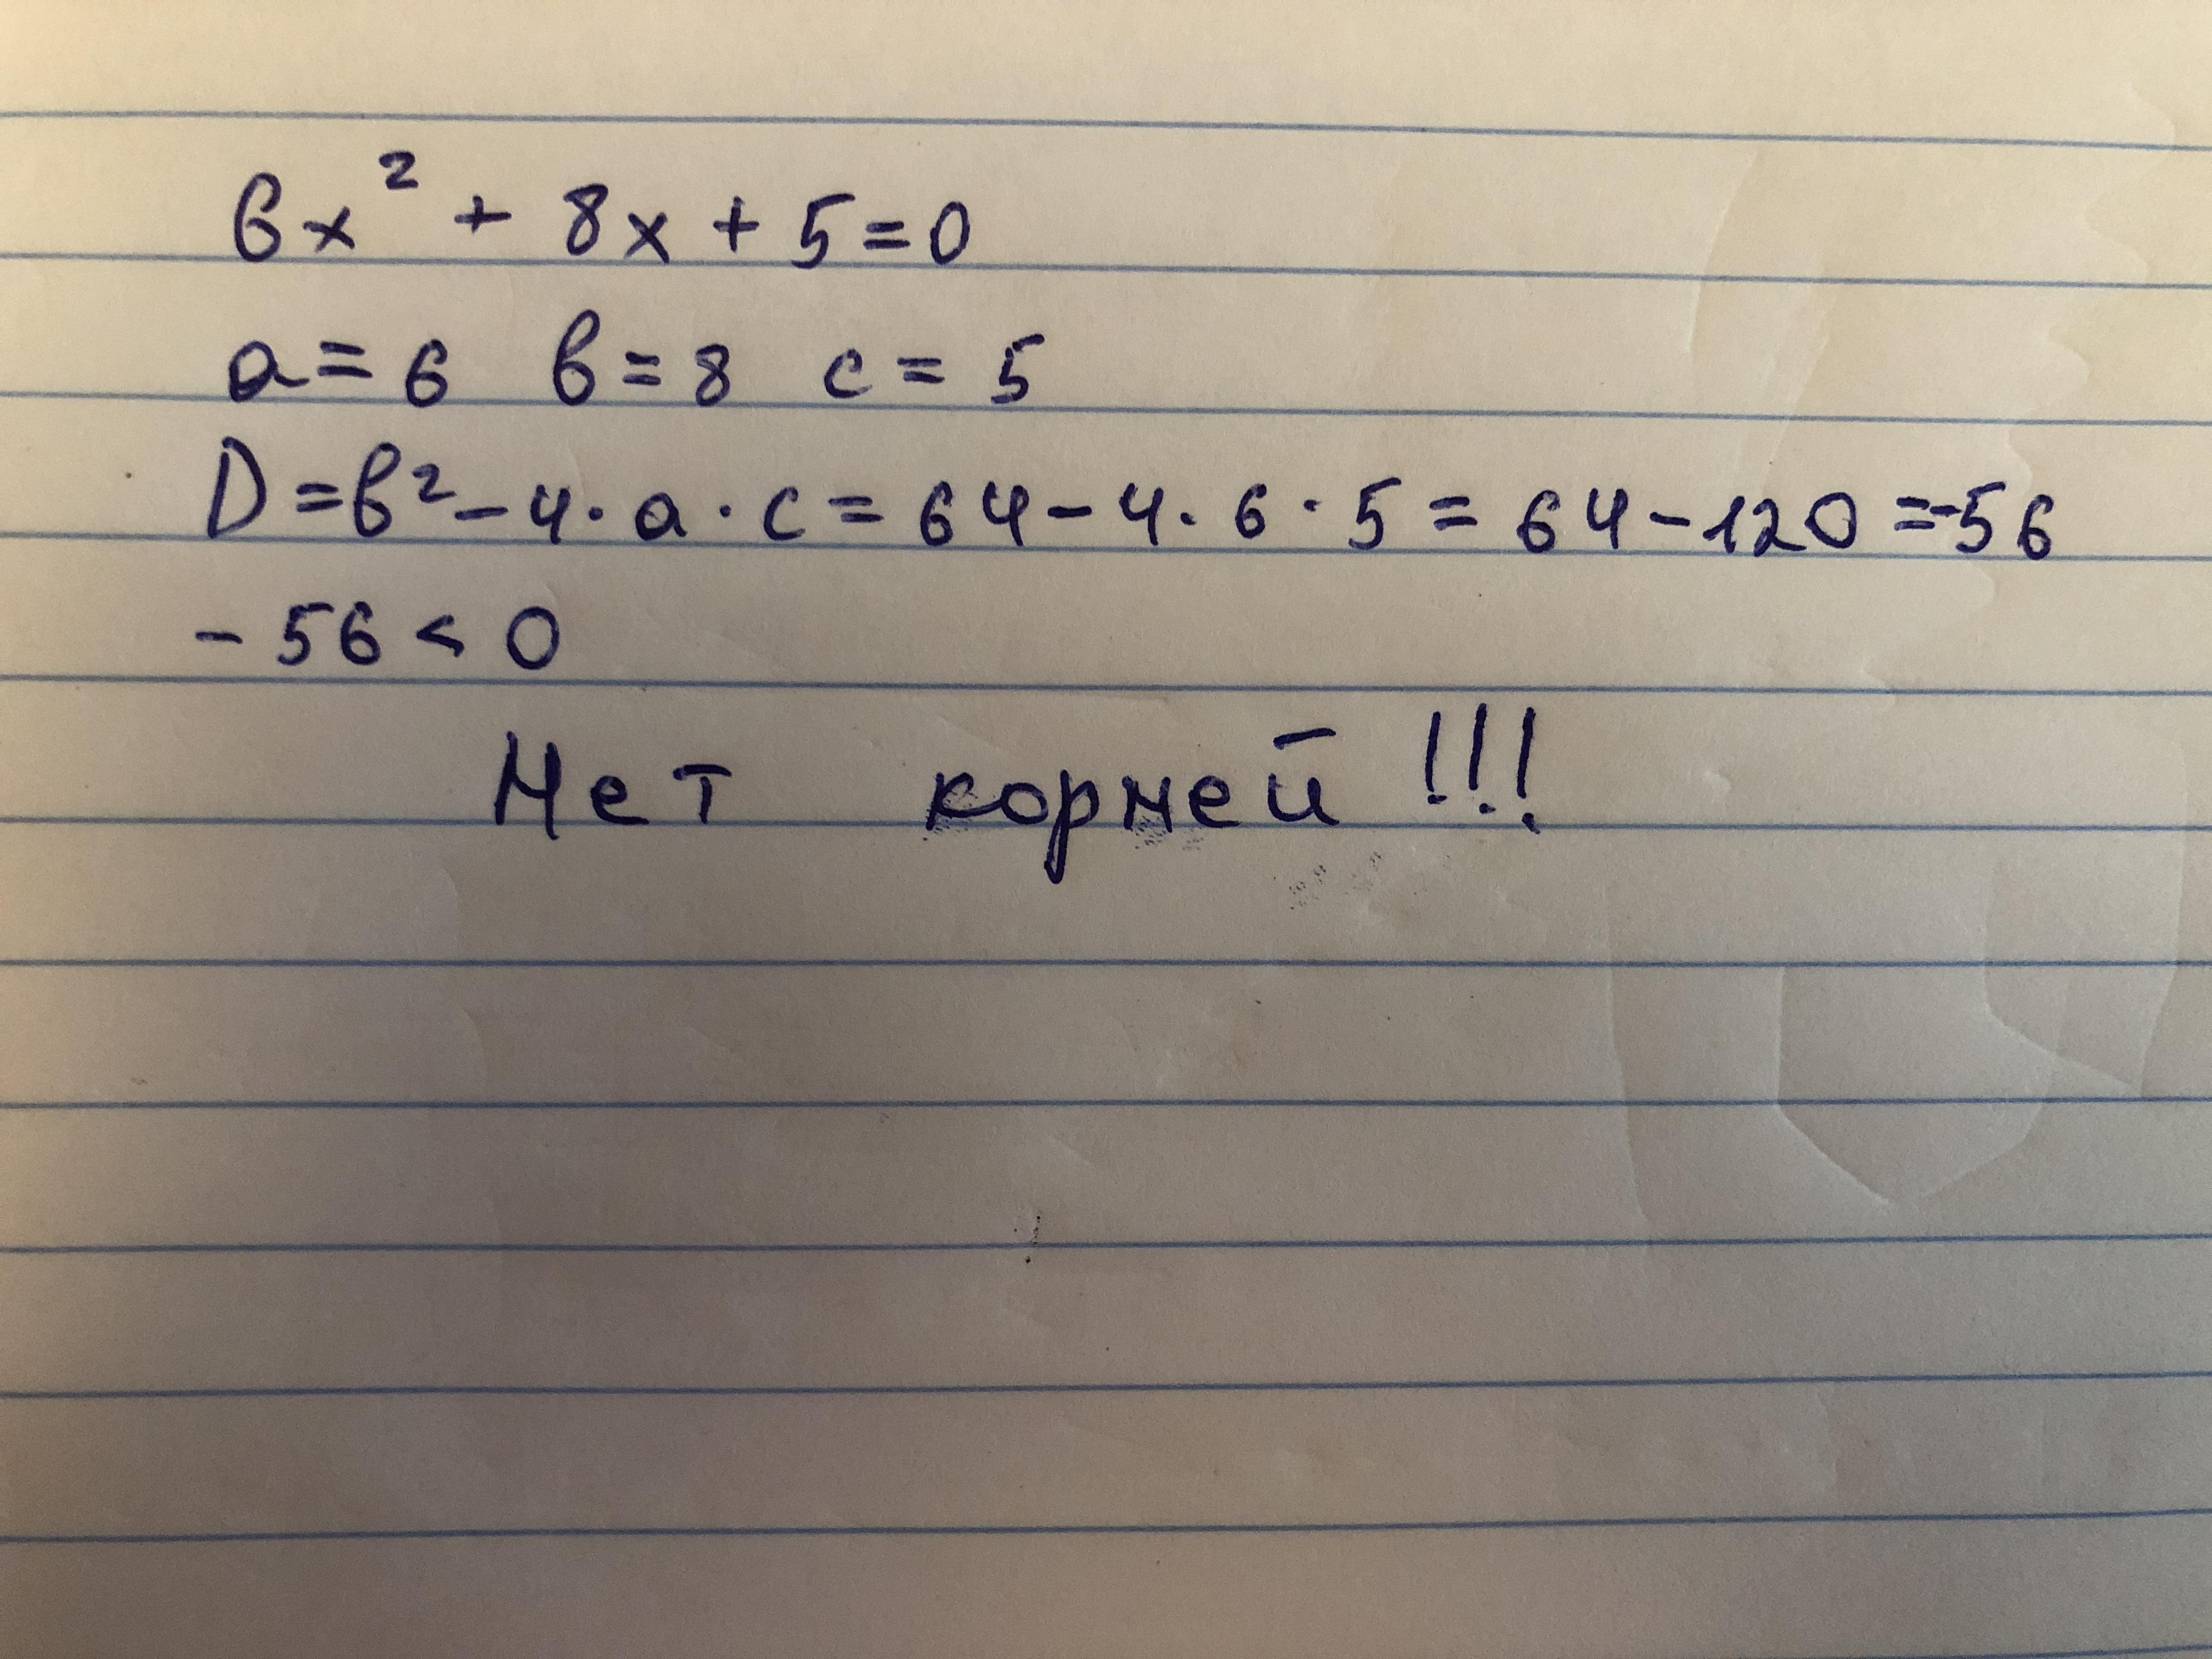 6x² + 8x + 5 = 0
a = 6 в = 8 c = 5
D = в² - 4 · a · c = 64 - 4 · 6 · 5 = 64 - 120 = -56
- 56 < 0
Нет корней !!!